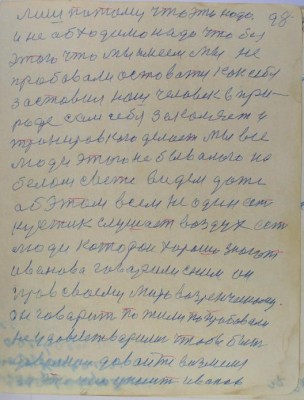 лиш потому что это надо 98
и не обходимо надо что без
этого что мы имеем мы не
пробовали остовати как себя
заставил наш человек в при-
роде сам себя закаляет и
тренировкой делает мы все
люди этого не бывалого на
белом свете видем даже
об этом всем не один ест
кустик слушает воздух ест
люди которои хорошо знают
иванова говорили сним он
прав своему мировозренчению.
он говорит пожили попробовали
не удовлетварили чтобы быт
давайте возмем
то что учит иванов